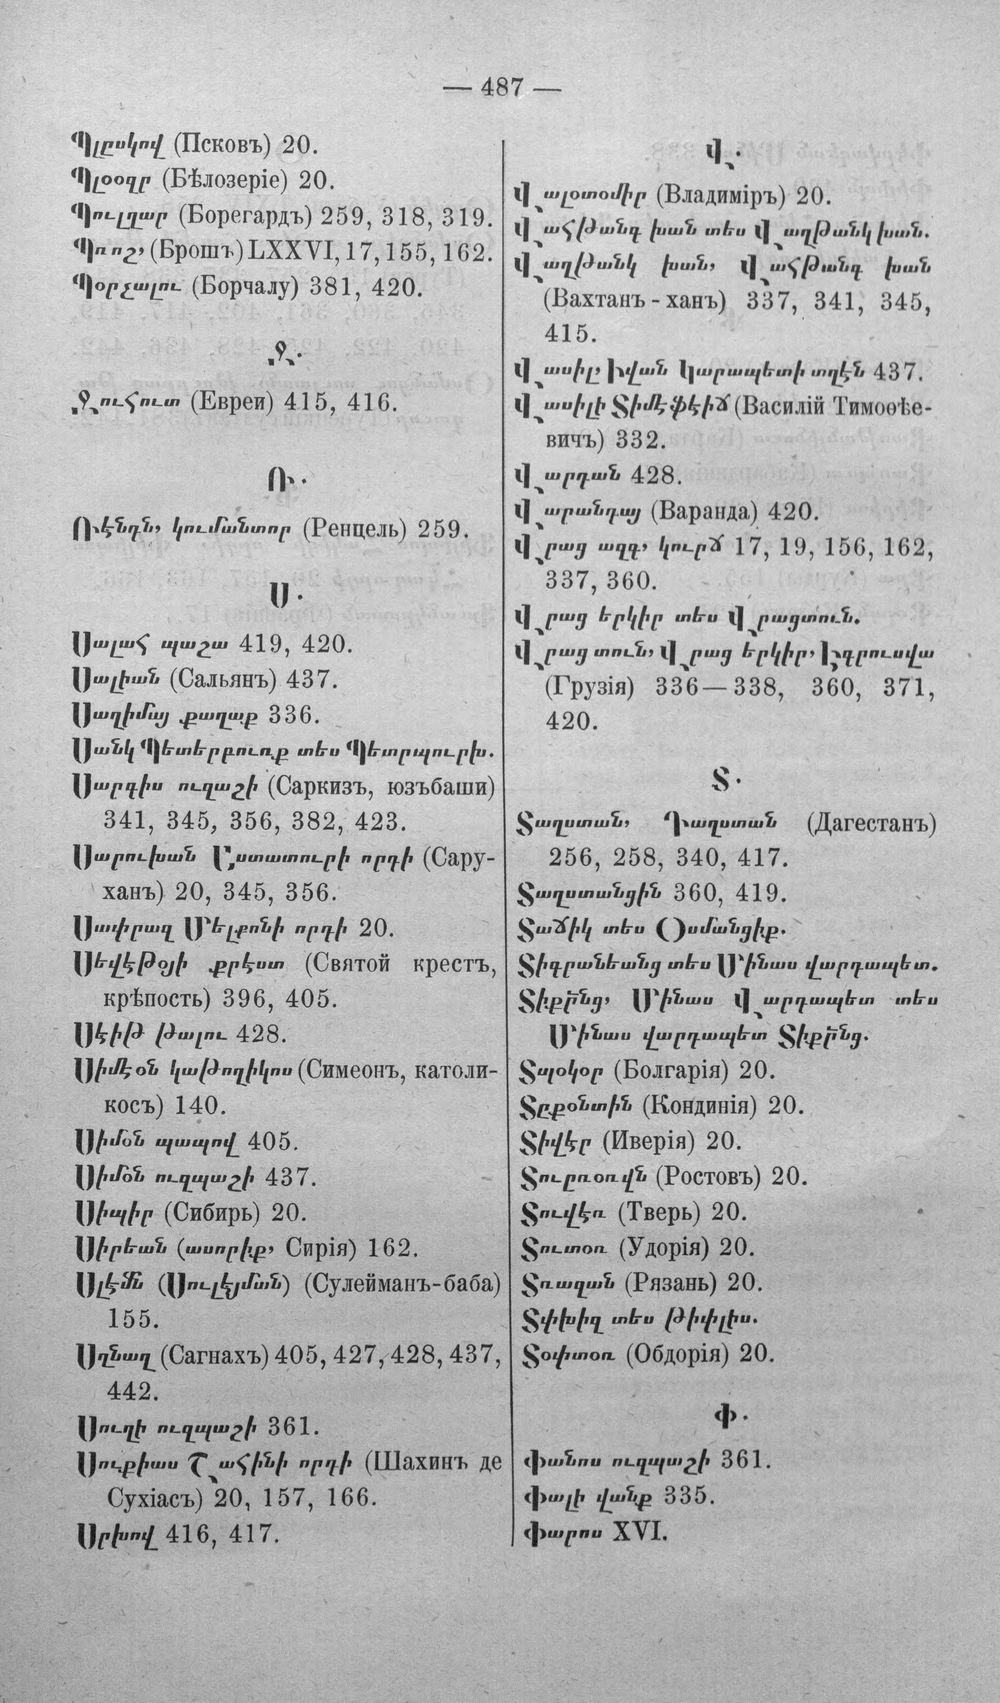 — 487 —
Պլըսկով (Псковъ) 20.
Պլօօզր (Бѣлозеріе) 20.
Պուլղար (Борегардъ) 259, 318, 319.
Պռոշ, (Брошъ) LXXVI, 17, 155, 162.
Պօրչալու (Борчалу) 381, 420.
Ջ.
Ջուհուտ (Евреи) 415, 416.
Ռ.
Ռէնդն, կումանտոր (Ренцель) 259.
Ս.
Սալահ պաշա 419, 420.
Սալիան (Сальянъ) 437.
Սաղիմայ քաղաք 336.
Սանկ Պետերբուռք տես Պետրպուրխ.
Սարգիս ուզաշի (Саркизъ, юзъбаши)
341, 345, 356, 382, 423.
Սարուխան Աստատուրի որդի (Сару-
ханъ) 20, 345, 356.
Սափրազ Մելքոնի որդի 20.
Սեվէթօյի քրէստ (Святой крестъ,
крѣпость) 396, 405.
Սէիթ թալու 428.
Սիմէօն կաթողիկոս (Симеонъ, католи-
косъ) 140.
Սիմօն պապով 405.
Սիմօն ուզպաշի 437.
Սիպիր (Сибирь) 20.
Սիրեան (ասորիք, Сирія) 162.
Սլէմն (Սուլէյման) (Сулейманъ-баба)
155.
Սղնաղ (Сагнахъ) 405, 427, 428, 437,
442.
Սուղի ուզպաշի 361.
Սուքիաս Շահինի որդի (Шахинъ де
Сухіасъ) 20, 157, 166.
Սրխով 416, 417.
Վ.
Վալօտօմիր (Владиміръ) 20.
Վահթանգ խան տես Վաղթանկ խան.
Վաղթանկ խան, Վահթանգ խան
(Вахтанъ - ханъ) 337, 341, 345,
415.
Վասիլ, Իվան Կարապետի տղէն 437.
Վասիլի Տիմէֆէիճ (Василій Тимоѳѣе-
вичъ) 332.
Վարդան 428.
Վարանդայ (Варанда) 420.
Վրաց ազգ, կուրճ 17, 19, 156, 162,
337, 360.
Վրաց երկիր տես Վրացտուն.
Վրաց տուն, Վրաց երկիր, Իգրուսվա
(Грузія) 336—338, 360, 371,
420.
Տ.
Տաղստան, Դաղստան (Дагестанъ)
256, 258, 340, 417.
Տաղստանցին 360, 419.
Տաճիկ տես Օսմանցիք.
Տիգրանեանց տես Մինաս վարդապետ.
Տիքրնց, Մինաս Վարդապետ տես
Մինաս վարդապետ Տիքրնց.
Տպօկօր (Болгарія) 20.
Տըքօնտին (Кондинія) 20.
Տիվէր (Иверія) 20.
Տուըռօռվն (Ростовъ) 20.
Տուվէռ (Тверь) 20.
Տուտօռ (Удорія) 20.
Տռազան (Рязань) 20.
Տփխիզ տես Թիփլիս.
Տօփտօռ (Обдорія) 20.
Փ.
Փանոս ուզպաշի 361.
Փալի վանք 335.
Փարոս XVI.